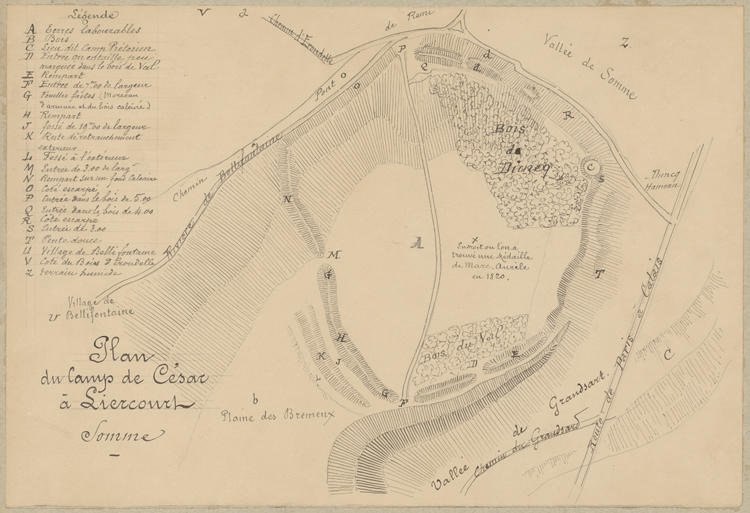 Légende
A Terres labourables
B Bois
C Lieu dit Camp Prétorien
D Entrée en entaille peu
marquée dans le bois du Val.
E Rempart
F Entrée de 7m00 de largeur
G Fouilles faites (Morceau
d'armure et du bois calciné)
H Rempart
J fossé de 10m00 de largeur
K Reste de retranchement
extérieur
L Fossé à l'extérieur
M Entrée de 3.00 de larg.
N Rempart sur un fond Calcaire
O Coté escarpé
P Entrée dans le bois de 5.00
Q Entrée dans le bois de 4.00
R Côté escarpé
S Entrée de 3.00
T Pente douce
U Village de Bellifontaine
V Coté du Bois d'Erondelle
Z terrain humide
V Z
Chemin d'Erondelle
de Rome
Vallée de Somme
Z
P
Q
d
d
R
Pont
O
O
Chemin
Rivière de Bellifontaine
Bois
de
Duncq
C
S
Duncq
Hameau
N
M
A
x
Endroit ou l'on a
trouvé une Médaille
de Marc-Aurèle
en 1820.
T
G
H
J
K
G
F
Bois du Val
D
E
Village de
Bellifontaine
Plan
du Camp de César
à Liercourt
Somme
b
Plaine des Bremeux
Vallée de Grandsart.
Chemin du Grandsard
Route de Paris à Calais
C